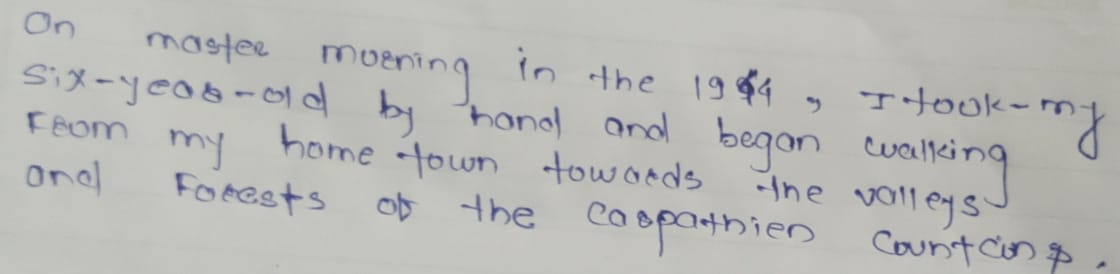 On master morning in the 1944, I took-my
six-year-old by hand and began walking
From my home town towards the valleys
and Forests of the Carpathien Countains.